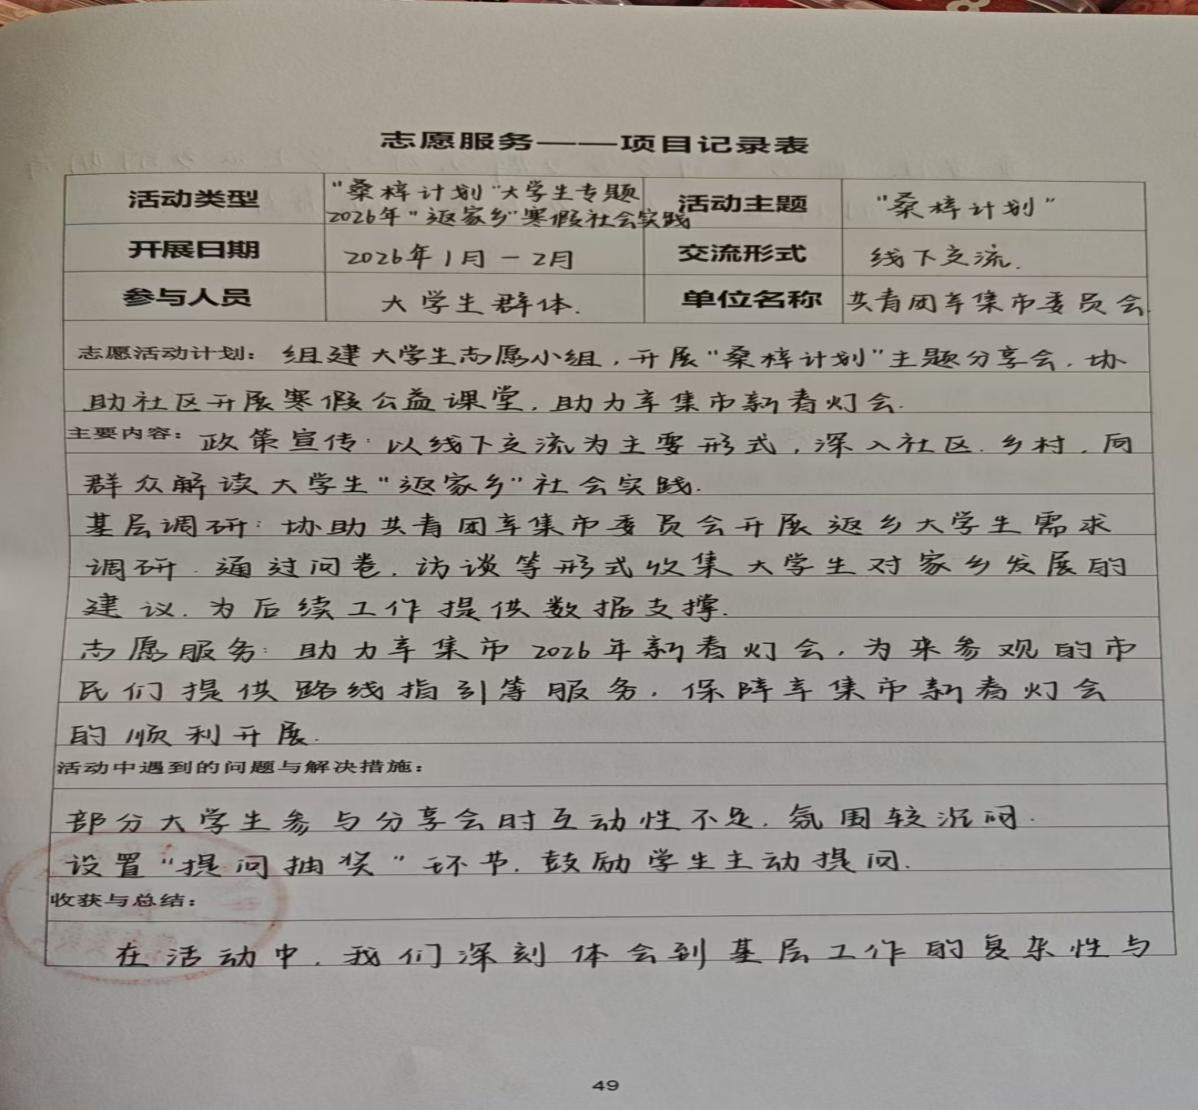 志愿服务——项目记录表
活动类型 "桑梓计划"大学生专题 活动主题 "桑梓计划"
2026年"返家乡"寒假社会实践
开展日期 2026年1月-2月 交流形式 线下交流.
参与人员 大学生群体. 单位名称 共青团辛集市委员会
志愿活动计划: 组建大学生志愿小组,开展"桑梓计划"主题分享会,协
助社区开展寒假公益课堂,助力辛集市新春灯会.
主要内容: 政策宣传:以线下交流为主要形式,深入社区.乡村,向
群众解读大学生"返家乡"社会实践.
基层调研:协助共青团辛集市委员会开展返乡大学生需求
调研.通过问卷,访谈等形式收集大学生对家乡发展的
建议.为后续工作提供数据支撑.
志愿服务:助力辛集市2026年新春灯会,为来参观的市
民们提供路线指引等服务,保障辛集市新春灯会
的顺利开展.
活动中遇到的问题与解决措施:
部分大学生参与分享会时互动性不足.氛围较沉闷.
设置"提问抽奖"环节.鼓励学生主动提问.
收获与总结:
在活动中,我们深刻体会到基层工作的复杂性与
49